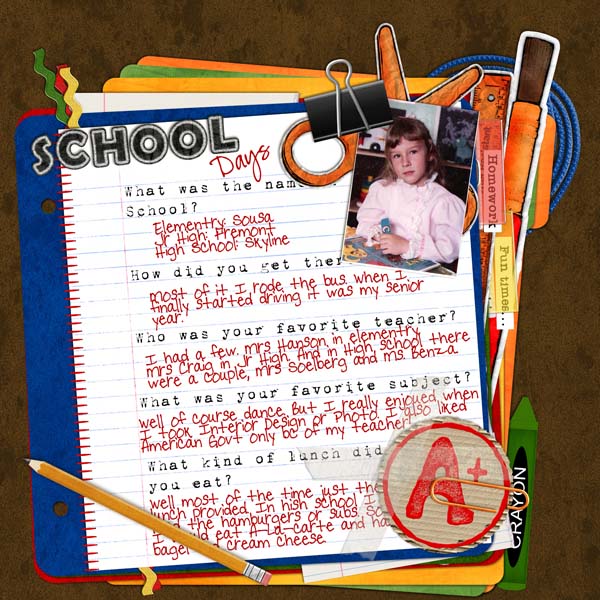 SCHOOL
Days
What was the name
School?
Elementry: Sousa
Jr High: Fremont
High School: Skyline
How did you get ther
most of it I rode the bus. When I
finally started driving it was my senior
year.
Who was your favorite teacher?
I had a few. mrs Hanson in elementry
mrs Craig in Jr High. And in High school there
were a couple, mrs Soelberg and ms. Benza
What was your favorite subject?
well of course dance. But I really enjoyed when
I took Interior Design or Photo. I also liked
American Govt only bc of my teacher!
What kind of lunch did
you eat?
well most of the time just the
lunch provided. In high school I
the hamburgers or subs. So
I would eat A-La-Carte and ha
bagel cream cheese
Homework
Fun times...
A+
CRAYON